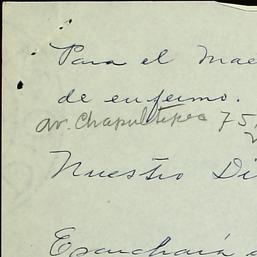 Para el Mae
de enfermo.
av. Chapultepec 75,
Nuestro Di
Escuchará